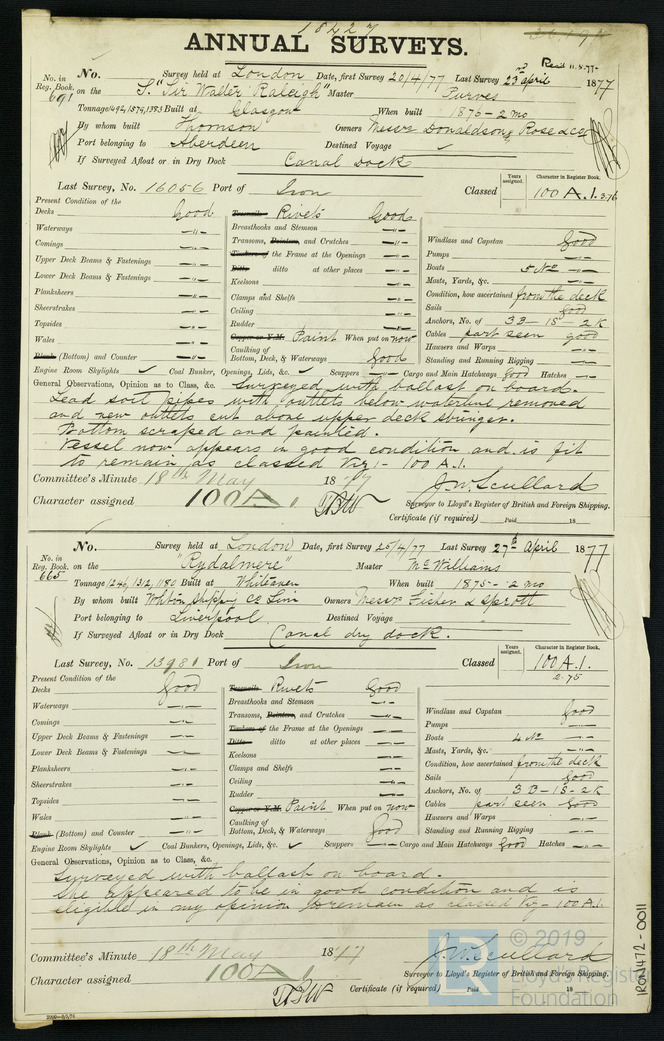 18427
ANNUAL SURVEYS.
Recd 11.5.77
No. in Reg. Book. 691 No. Survey held at London Date, first Survey 20/4/77 Last Survey 23rd April 1877
on the S. "Sir Walter Raleigh" Master Purves
Tonnage 1492, 1579, 1393 Built at Glasgow When built 1876 - 2 mo
By whom built Thomson Owners Messrs Donaldson, Rose & Co
Port belonging to Aberdeen Destined Voyage
If Surveyed Afloat or in Dry Dock Canal Dock
Last Survey, No. 16056 Port of Iron Classed Years assigned. Character in Register Book. 100 A.1. 3.76
Present Condition of the
Decks Good
Waterways -"-
Comings -"-
Upper Deck Beams & Fastenings -"-
Lower Deck Beams & Fastenings -"-
Planksheers -"-
Sheerstrakes -"-
Topsides -"-
Wales -"-
Plank (Bottom) and Counter -"-
Treenails Rivets Good
Breasthooks and Stemson -"-
Transoms, Pointers, and Crutches -"-
Timbers of the Frame at the Openings -"-
Ditto ditto at other places -"-
Keelsons -"-
Clamps and Shelfs -"-
Ceiling -"-
Rudder -"-
Copper or Y.M. Paint When put on now
Caulking of Bottom, Deck, & Waterways Good
Windlass and Capstan Good
Pumps -"-
Boats 5 No -"-
Masts, Yards, &c. -"-
Condition, how ascertained from the deck
Sails Good
Anchors, No. of 3B - 1S - 2K
Cables part seen good
Hawsers and Warps -"-
Standing and Running Rigging -"-
Engine Room Skylights ✓ Coal Bunker, Openings, Lids, &c. ✓ Scuppers -"- Cargo and Main Hatchways Good Hatches -"-
General Observations, Opinion as to Class, &c. Surveyed with ballast on board.
Lead soil pipes with outlets below waterline removed
and new outlets cut above upper deck stringer.
Bottom scraped and painted.
Vessel now appears in good condition and is fit
to remain as classed Viz:- 100 A.1.
Committee's Minute 18th May 1877 J.W. Scullard
Character assigned 100A1 Surveyor to Lloyd's Register of British and Foreign Shipping.
Certificate (if required) Paid 18
No. in Reg. Book. 665 No. Survey held at London Date, first Survey 25/4/77 Last Survey 27th April 1877
on the "Rydalmere" Master McWilliams
Tonnage 1246, 1312, 1180 Built at Whitehaven When built 1875 - 2 mo
By whom built Whhven Shipping Co Lim Owners Messrs Fisher & Sprott
Port belonging to Liverpool Destined Voyage
If Surveyed Afloat or in Dry Dock Canal dry dock.
Last Survey, No. 13981 Port of Iron Classed Years assigned. Character in Register Book. 100 A.1. 2.75
Present Condition of the
Decks Good
Waterways -"-
Comings -"-
Upper Deck Beams & Fastenings -"-
Lower Deck Beams & Fastenings -"-
Planksheers -"-
Sheerstrakes -"-
Topsides -"-
Wales -"-
Plank (Bottom) and Counter -"-
Treenails Rivets Good
Breasthooks and Stemson -"-
Transoms, Pointers, and Crutches -"-
Timbers of the Frame at the Openings -"-
Ditto ditto at other places -"-
Keelsons -"-
Clamps and Shelfs -"-
Ceiling -"-
Rudder -"-
Copper or Y.M. Paint When put on now
Caulking of Bottom, Deck, & Waterways Good
Windlass and Capstan Good
Pumps -"-
Boats 4 No -"-
Masts, Yards, &c. -"-
Condition, how ascertained from the deck
Sails Good
Anchors, No. of 3B - 1S - 2K
Cables part seen Good
Hawsers and Warps -"-
Standing and Running Rigging -"-
Engine Room Skylights ✓ Coal Bunkers, Openings, Lids, &c. ✓ Scuppers -"- Cargo and Main Hatchways Good Hatches -"-
General Observations, Opinion as to Class, &c.
Surveyed with ballast on board.
She appeared to be in good condition and is
eligible in my opinion to remain as classed Viz - 100 A.1.
Committee's Minute 18th May 1877 J.W. Scullard
Character assigned 100A1 Surveyor to Lloyd's Register of British and Foreign Shipping.
Certificate (if required) Paid 18
© 2019
Lloyd's Register
Foundation
IRON472-0011